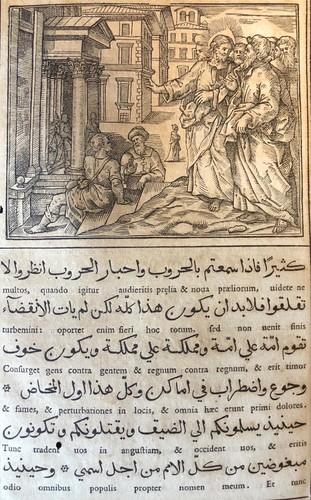 كثيرًا فاذا سمعتم بالحروب واخبار الحروب انظروا لا
multos, quando igitur audieritis prælia & noua præliorum, uidete ne
تقلقوا فلا بد ان يكون هذا كله لكن لم يات الانقضآء
turbemini: oportet enim fieri hoc totum. sed non uenit finis
تقوم امّة علي امّة ومملكة علي مملكة ويكون خوف
Consurget gens contra gentem & regnum contra regnum, & erit timor
وجوع واضطراب في اماكن وكلّ هذا اول المخاض
& fames, & perturbationes in locis, & omnia hæc erunt primi dolores.
حينيذ يسلمونكم الي الضيف ويقتلونكم وتكونون
Tunc tradent uos in angustiam, & occident uos, & eritis
مبغوضين من كل الامم من اجل اسمي وحينيذ
odio omnibus populis propter nomen meum. Et tunc